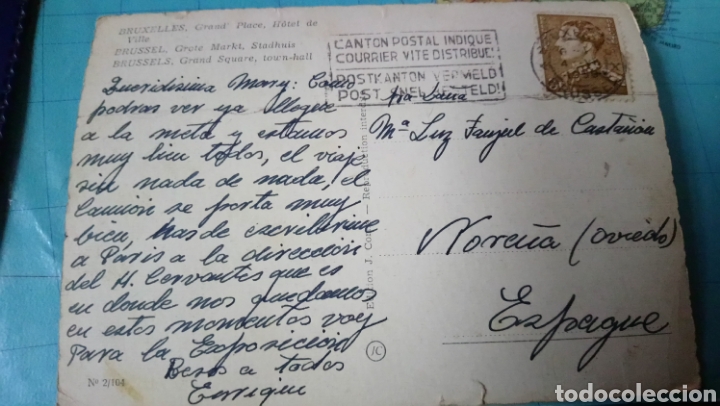 BRUXELLES, Grand' Place, Hôtel de
Ville
BRUSSEL, Grote Markt, Stadhuis
BRUSSELS, Grand Square, town-hall
Queridisima Mary: Como
podras ver ya llegue
a la meta y estamos
muy bien todos, el viaje
sin nada de nada, el
Camión se porta muy
bien, has de escribirme
a Paris a la dirección
del H. Cervantes que es
en donde nos quedamos
en estos momentos voy
Para la Exposición
Besos a todos
Enrique
Nº 2/104
Edition J. Reproduction
IC
CANTON POSTAL INDIQUE
COURRIER VITE DISTRIBUE!
POSTKANTON VERMELD
POST SNEL BESTELD!
Mª Luz Fanjul de Castañón
Noreña (Oviedo)
Espagne
todocoleccion.net